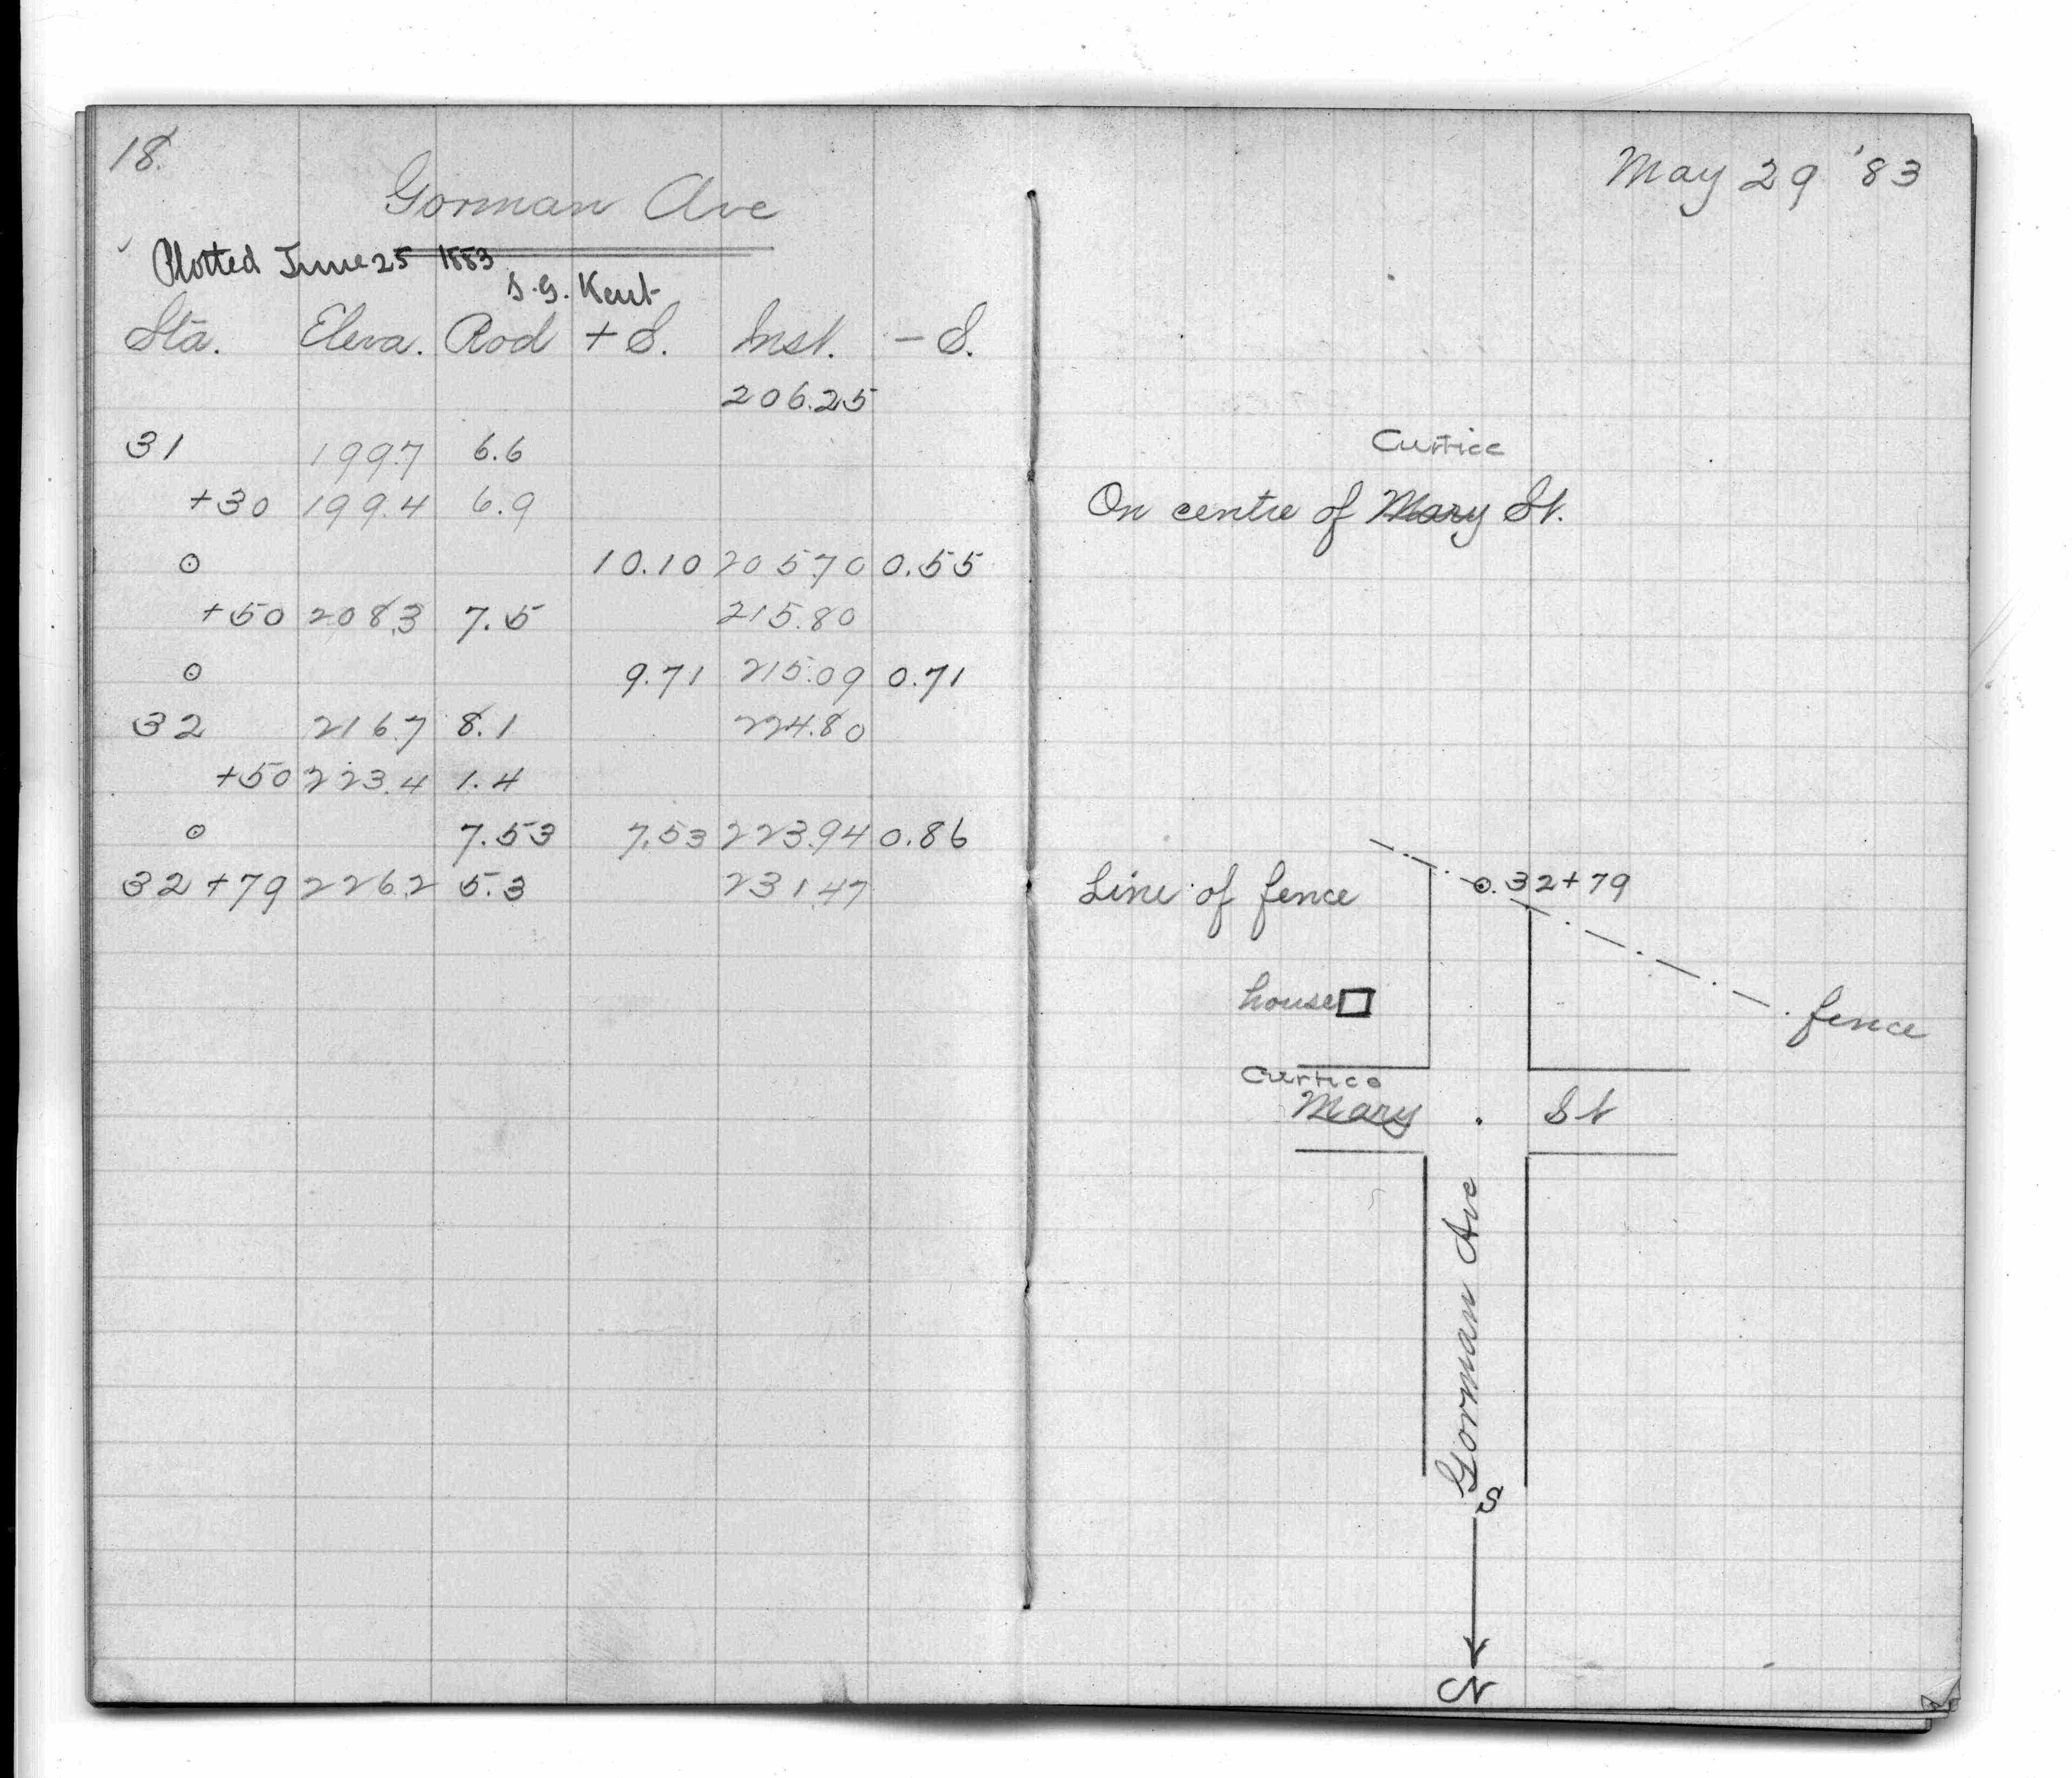 18.
Gorman Ave
Plotted June 25 1883
S. G. Kent
Sta. Eleva. Rod + S. Inst. - S.
206.25
31 199.7 6.6
+30 199.4 6.9
⊙ 10.10 205.70 0.55
+50 208.3 7.5 215.80
⊙ 9.71 215.09 0.71
32 216.7 8.1 224.80
+50 223.4 1.4
⊙ 7.53 7.53 223.94 0.86
32 +79 226.2 5.3 231.47
May 29 '83
Curtice
On centre of Mary St.
Line of fence
⊙ 32+79
house
fence
Curtice
Mary St
Gorman Ave
S
N